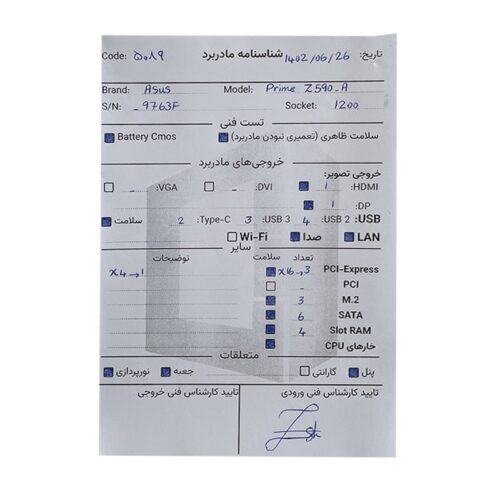 تاریخ: 1402/06/26 شناسنامه مادربرد Code: ۵۰۸۹
Brand: Asus Model: Prime Z590_A
S/N: _9763F Socket: 1200
تست فنی
سلامت ظاهری (تعمیری نبودن مادربرد) Battery Cmos
خروجی‌های مادربرد
خروجی تصویر:
HDMI: 1 DVI: _ VGA: _
DP: 1
USB: USB 2: 4 USB 3: 3 Type-C: 2 سلامت
LAN صدا Wi-Fi
سایر
تعداد سلامت توضیحات
PCI-Express x16→3 x4→1
PCI
M.2 3
SATA 6
Slot RAM 4
خارهای CPU
متعلقات
پنل گارانتی جعبه نورپردازی
تایید کارشناس فنی ورودی تایید کارشناس فنی خروجی